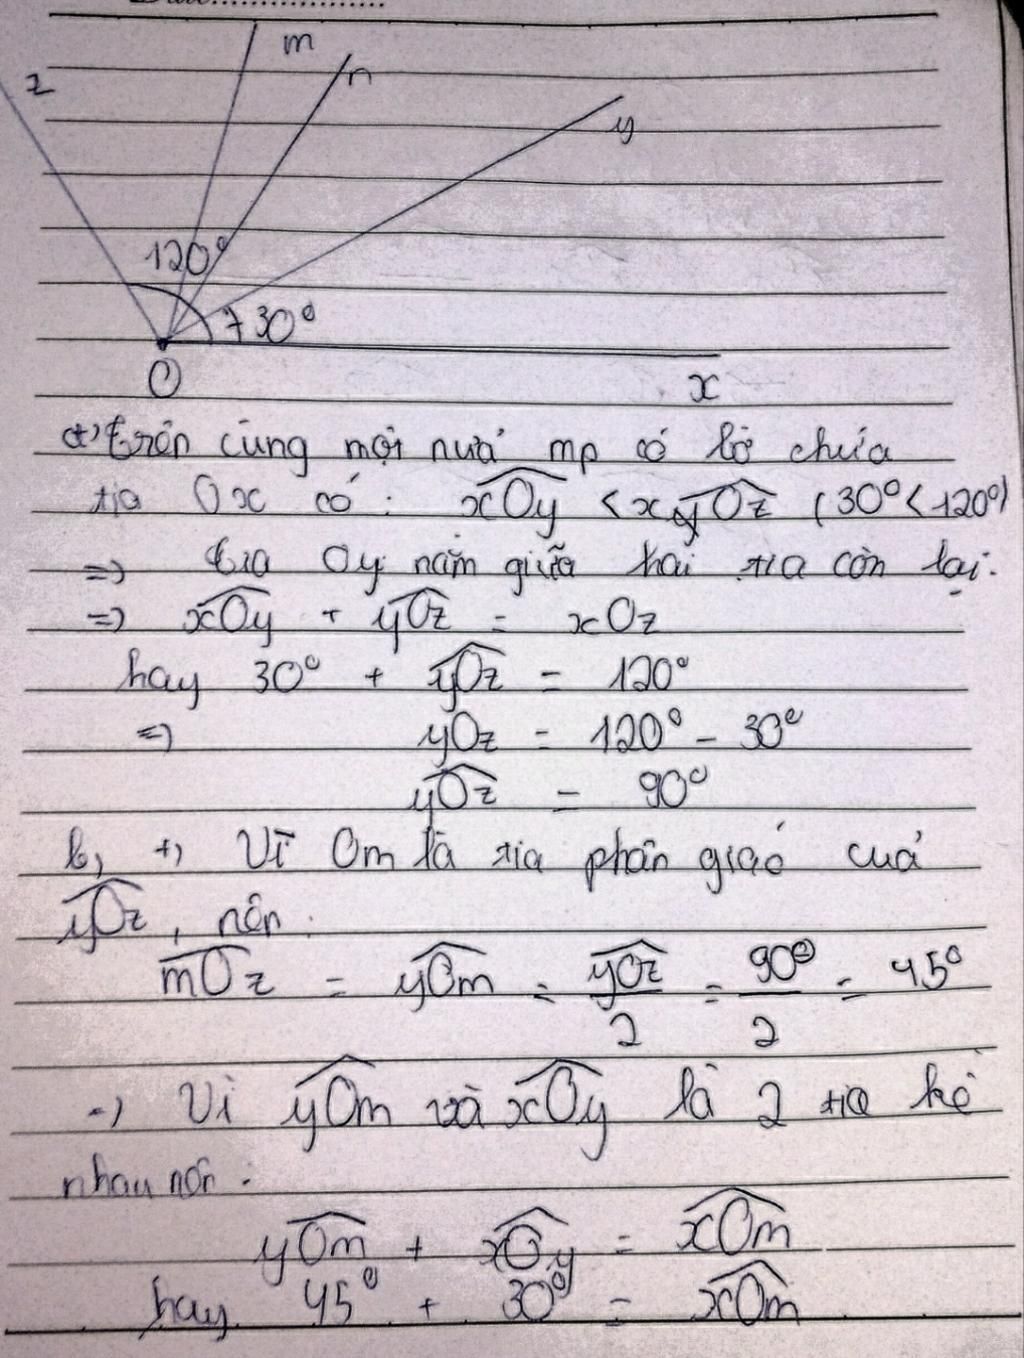 z
m
n
y
120°
30°
O
x
a) trên cùng một nửa mp có bờ chứa
tia Ox có: xOy < xOz (30° < 120°)
=> tia Oy nằm giữa hai tia còn lại.
=> xOy + yOz = xOz
hay 30° + yOz = 120°
=> yOz = 120° - 30°
yOz = 90°
b, +, Vì Om là tia phân giác của
yOz, nên:
mOz = yOm = yOz/2 = 90°/2 = 45°
=) Vì yOm và xOy là 2 tia kề
nhau nên:
yOm + xOy = xOm
hay 45° + 30° = xOm